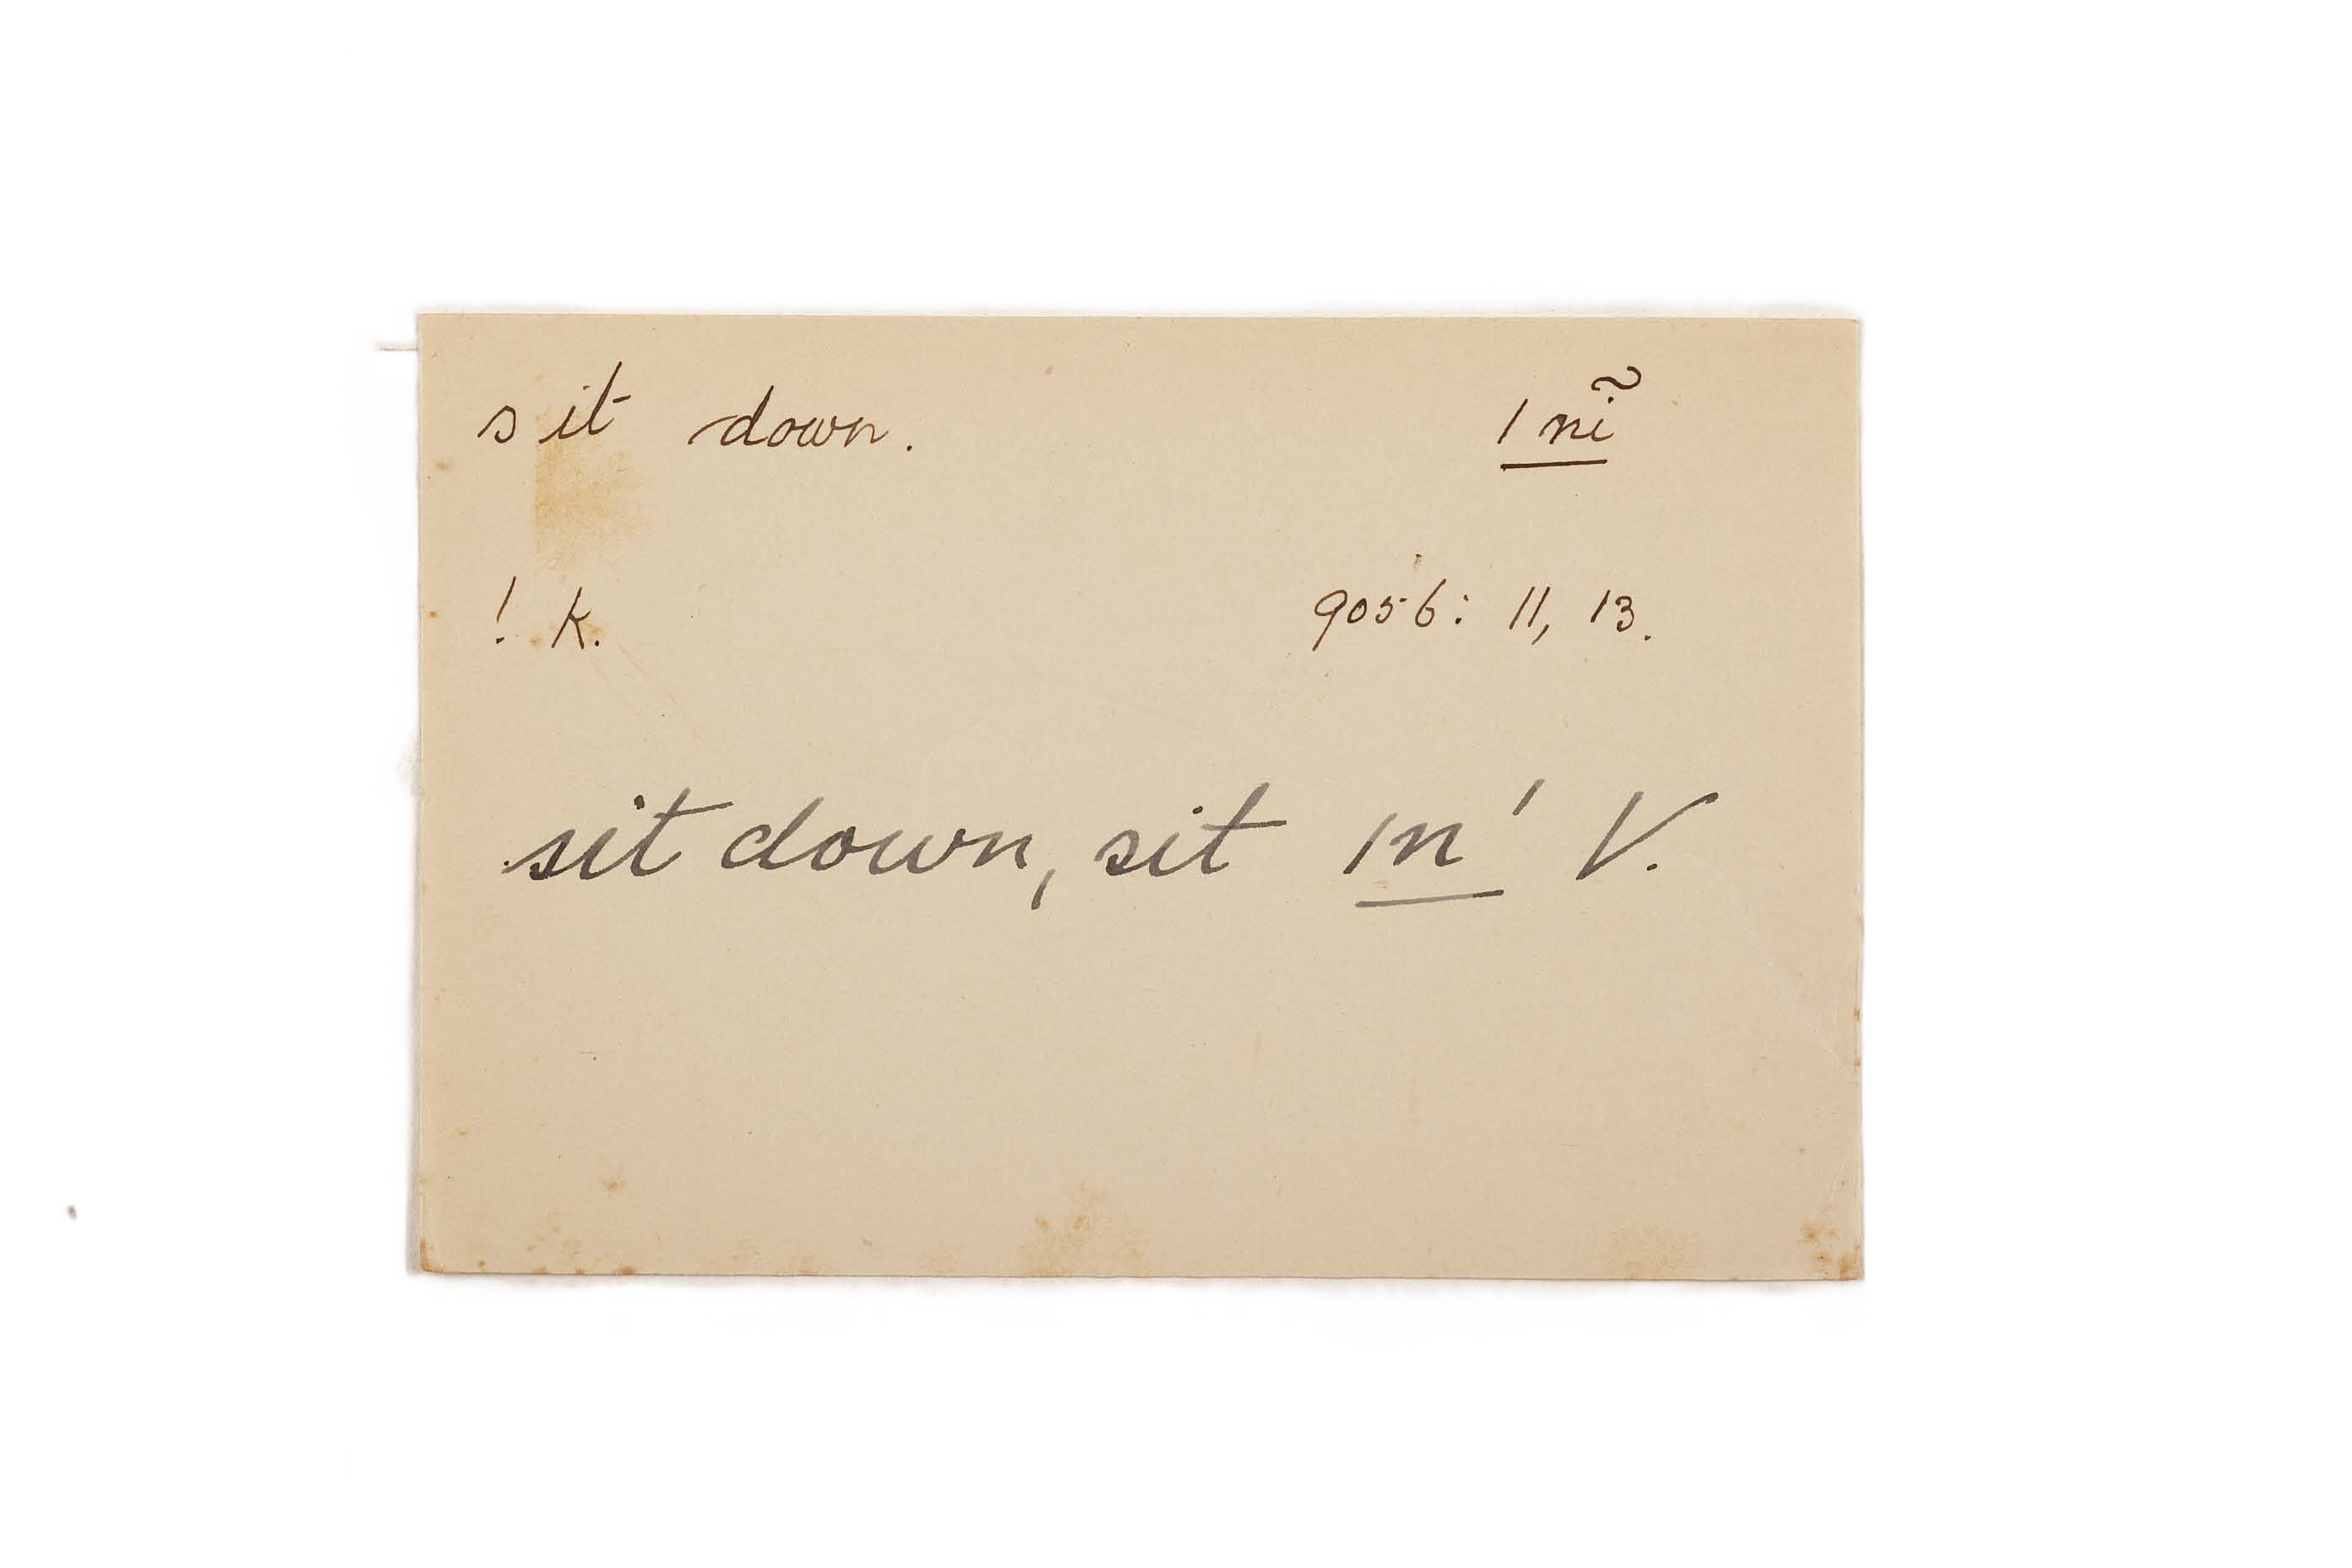 sit down. /nĩ
! k. 9056: 11, 13.
sit down, sit /n' V.